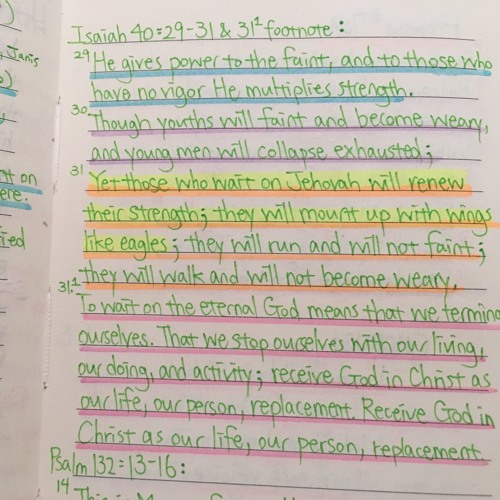 Janis
Isaiah 40:29-31 & 31¹ footnote:
29 He gives power to the faint, and to those who
have no vigor He multiplies strength.
30 Though youths will faint and become weary,
and young men will collapse exhausted;
31 Yet those who wait on Jehovah will renew
their strength; they will mount up with wings
like eagles; they will run and will not faint;
they will walk and will not become weary.
31¹ To wait on the eternal God means that we termina
ourselves. That we stop ourselves with our living,
our doing, and activity; receive God in Christ as
our life, our person, replacement. Receive God in
Christ as our life, our person, replacement
Psalm 132:13-16:
14
on
ere.